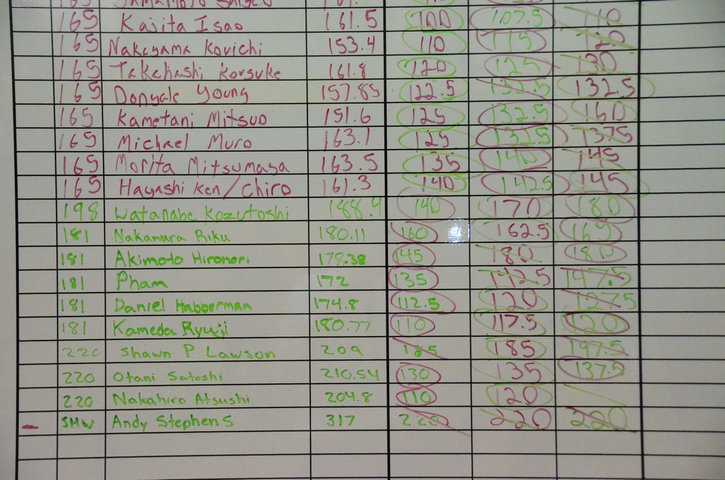 165 Kajita Isao 161.5 100 107.5 110
165 Nakayama Kovichi 153.4 110 115 120
165 Takehashi Korsuke 161.8 120 125 130
165 Donyale Young 157.85 122.5 132.5 132.5
165 Kametani Mitsuo 151.6 125 132.5 160
165 Michael Muro 163.1 125 132.5 137.5
165 Morita Mitsumasa 163.5 135 140 145
165 Hayashi Ken/chiro 161.3 140 142.5 145
198 Watanabe Kozutoshi 188.4 140 170 180
181 Nakamura Riku 180.11 160 162.5 165
181 Akimoto Hironori 178.38 145 180 180
181 Pham 172 135 142.5 147.5
181 Daniel Habberman 174.8 112.5 120 127.5
181 Kameda Ryuji 180.77 110 117.5 120
220 Shawn P Lawson 209 185 185 197.5
220 Otani Satoshi 210.54 130 135 137.5
220 Nakahiro Atsushi 204.8 110 120
SHW Andy Stephens 317 220 220 220